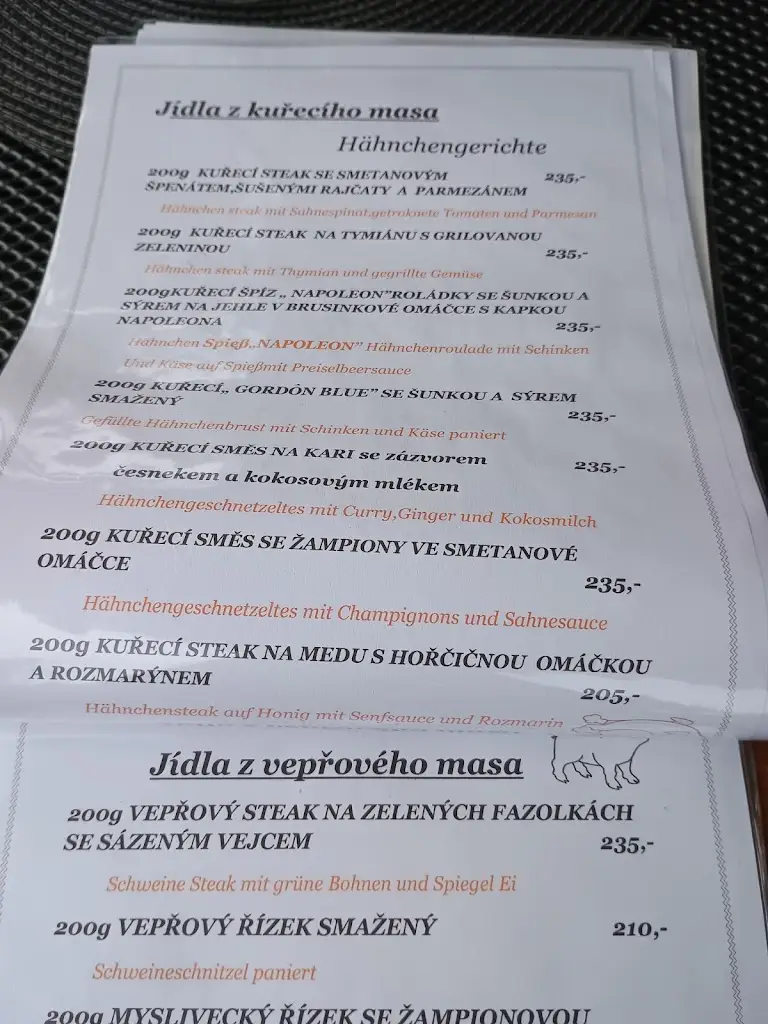 Jídla z kuřecího masa
Hähnchengerichte
200g KUŘECÍ STEAK SE SMETANOVÝM 235,-
ŠPENÁTEM,SUŠENÝMI RAJČATY A PARMEZÁNEM
Hähnchen steak mit Sahnespinat,getroknete Tomaten und Parmesan
200g KUŘECÍ STEAK NA TYMIÁNU S GRILOVANOU
ZELENINOU 235,-
Hähnchen steak mit Thymian und gegrillte Gemüse
200gKUŘECÍ ŠPÍZ „ NAPOLEON"ROLÁDKY SE ŠUNKOU A
SÝREM NA JEHLE V BRUSINKOVÉ OMÁČCE S KAPKOU
NAPOLEONA 235,-
Hähnchen Spieß„NAPOLEON" Hähnchenroulade mit Schinken
Und Käse auf Spießmit Preiselbeersauce
200g KUŘECÍ„ GORDÓN BLUE" SE ŠUNKOU A SÝREM
SMAŽENÝ 235,-
Gefüllte Hähnchenbrust mit Schinken und Käse paniert
200g KUŘECÍ SMĚS NA KARI se zázvorem 235,-
česnekem a kokosovým mlékem
Hähnchengeschnetzeltes mit Curry,Ginger und Kokosmilch
200g KUŘECÍ SMĚS SE ŽAMPIONY VE SMETANOVÉ
OMÁČCE 235,-
Hähnchengeschnetzeltes mit Champignons und Sahnesauce
200g KUŘECÍ STEAK NA MEDU S HOŘČIČNOU OMÁČKOU
A ROZMARÝNEM 205,-
Hähnchensteak auf Honig mit Senfsauce und Rozmarin
Jídla z vepřového masa
200g VEPŘOVÝ STEAK NA ZELENÝCH FAZOLKÁCH
SE SÁZENÝM VEJCEM 235,-
Schweine Steak mit grüne Bohnen und Spiegel Ei
200g VEPŘOVÝ ŘÍZEK SMAŽENÝ 210,-
Schweineschnitzel paniert
200g MYSLIVECKÝ ŘÍZEK SE ŽAMPIONOVOU